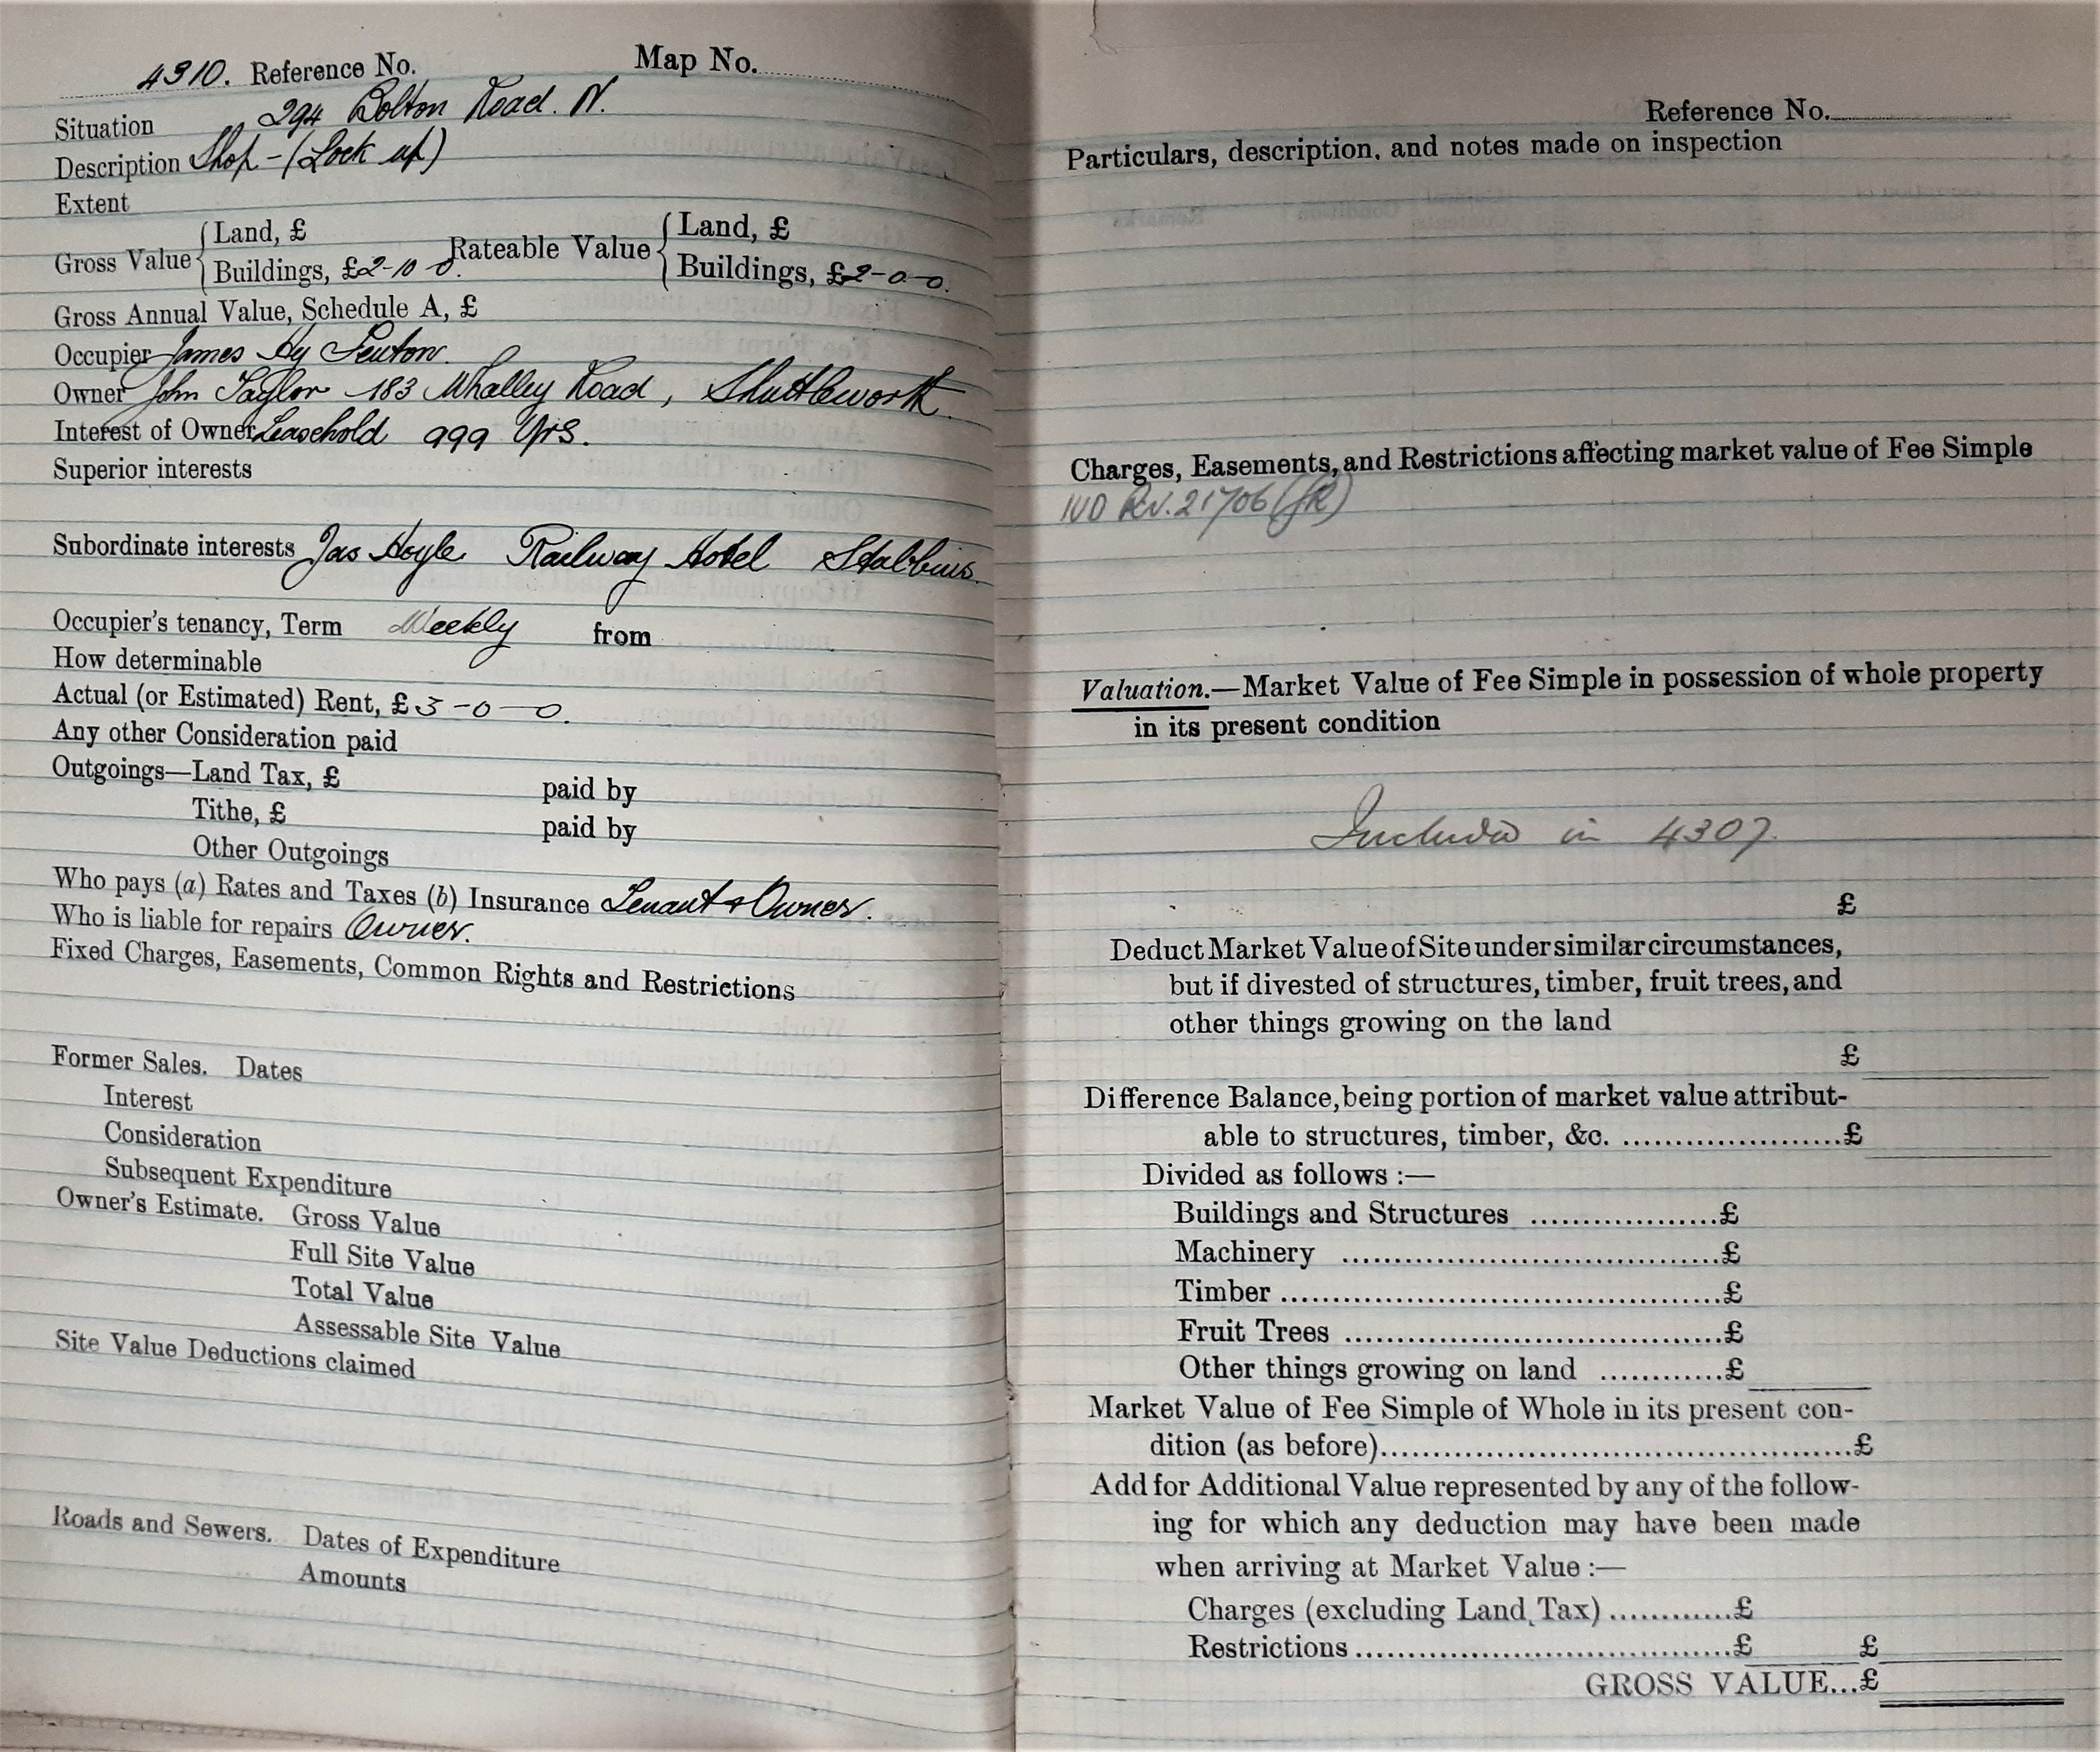 4310. Reference No. Map No.
Situation 294 Bolton Road. N.
Description Shop - (Lock up)
Extent
Gross Value { Land, £ Rateable Value { Land, £
Buildings, £2-10-0. Buildings, £2-0-0.
Gross Annual Value, Schedule A, £
Occupier James Hy Fenton.
Owner John Taylor 183 Whalley Road, Shuttleworth.
Interest of Owner Leasehold 999 Yrs.
Superior interests
Subordinate interests Jas Hoyle Railway Hotel Stubbins.
Occupier's tenancy, Term Weekly from
How determinable
Actual (or Estimated) Rent, £3-0-0.
Any other Consideration paid
Outgoings—Land Tax, £ paid by
Tithe, £ paid by
Other Outgoings
Who pays (a) Rates and Taxes (b) Insurance Tenant & Owner.
Who is liable for repairs Owner.
Fixed Charges, Easements, Common Rights and Restrictions
Former Sales. Dates
Interest
Consideration
Subsequent Expenditure
Owner's Estimate. Gross Value
Full Site Value
Total Value
Assessable Site Value
Site Value Deductions claimed
Roads and Sewers. Dates of Expenditure
Amounts
Reference No.
Particulars, description, and notes made on inspection
Charges, Easements, and Restrictions affecting market value of Fee Simple
Valuation.—Market Value of Fee Simple in possession of whole property
in its present condition
Included in 4307.
£
Deduct Market Value of Site under similar circumstances,
but if divested of structures, timber, fruit trees, and
other things growing on the land
£
Difference Balance, being portion of market value attribut-
able to structures, timber, &c. ......................£
Divided as follows :—
Buildings and Structures ..................£
Machinery ....................................£
Timber ..........................................£
Fruit Trees ....................................£
Other things growing on land ............£
Market Value of Fee Simple of Whole in its present con-
dition (as before)..............................................£
Add for Additional Value represented by any of the follow-
ing for which any deduction may have been made
when arriving at Market Value :—
Charges (excluding Land Tax) ............£
Restrictions.....................................£ £
GROSS VALUE...£